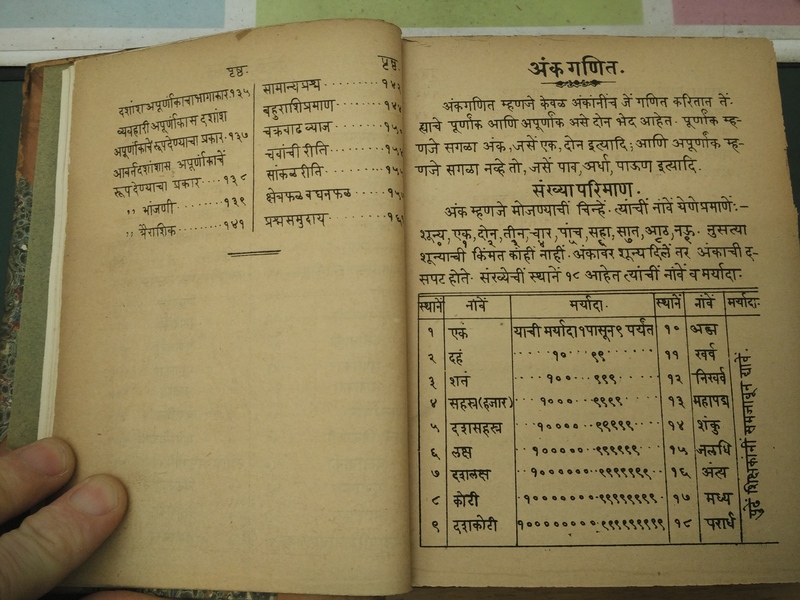 पृष्ठ.
दशांश अपूर्णांकाचा भागाकार. १३५
व्यवहारी अपूर्णांकास दशांश
अपूर्णांकाचें रूप देण्याचा प्रकार. १३७
आवर्तदशांशास, अपूर्णांकाचें
रूप देण्याचा प्रकार ···· १३८
,, भांजणी ········ १३९
,, त्रैराशिक ········ १४१
पृष्ठ.
सामान्यप्रश्न ········
बहुराशिप्रमाण ········
चक्रवाढ व्याज ······
चवांची रीति ········
सांकळ रीति ········
क्षेत्रफळ व घनफळ ···
प्रश्नसमुदाय ········
अंकगणित.
अंकगणित म्हणजे केवळ अंकांनींच जें गणित करितात तें·
ह्याचे पूर्णांक आणि अपूर्णांक असे दोन भेद आहेत· पूर्णांक म्ह-
णजे सगळा अंक, जसें एक, दोन इत्यादि; आणि अपूर्णांक म्ह-
णजे सगळा नव्हे तो, जसें पाव, अर्धा, पाऊण इत्यादि.
संख्यापरिमाण.
अंक म्हणजे मोजण्याचीं चिन्हें· त्यांचीं नांवें येणेप्रमाणें:—
शून्य, एक, दोन, तीन, चार, पांच, सहा, सात, आठ, नऊ. नुसत्या
शून्याची किंमत कांहीं नाहीं· अंकावर शून्य दिलें तर अंकाची द-
सपट होते· संख्येचीं स्थानें १८ आहेत त्यांचीं नांवें व मर्यादा·
स्थानें नांवें मर्यादा· स्थानें नांवें मर्यादा·
१ एकं याची मर्यादा १ पासून ९ पर्यंत १० अब्ज
२ दहं १० ·· ९९ ११ खर्व
३ शतं १०० ··· ९९९ १२ निखर्व
४ सहस्त्र(हजार) १००० ·· ९९९९ १३ महापद्म
५ दशसहस्त्र १०००० ·· ९९९९९ १४ शंकु
६ लक्ष १००००० ·· ९९९९९९ १५ जलधि
७ दशलक्ष १०००००० ·· ९९९९९९९ १६ अंत्य
८ कोटी १००००००० ·· ९९९९९९९९ १७ मध्य
९ दशकोटी १०००००००० · ९९९९९९९९९ १८ परार्ध
पुढें शिक्षकांनीं समजावून द्यावें.